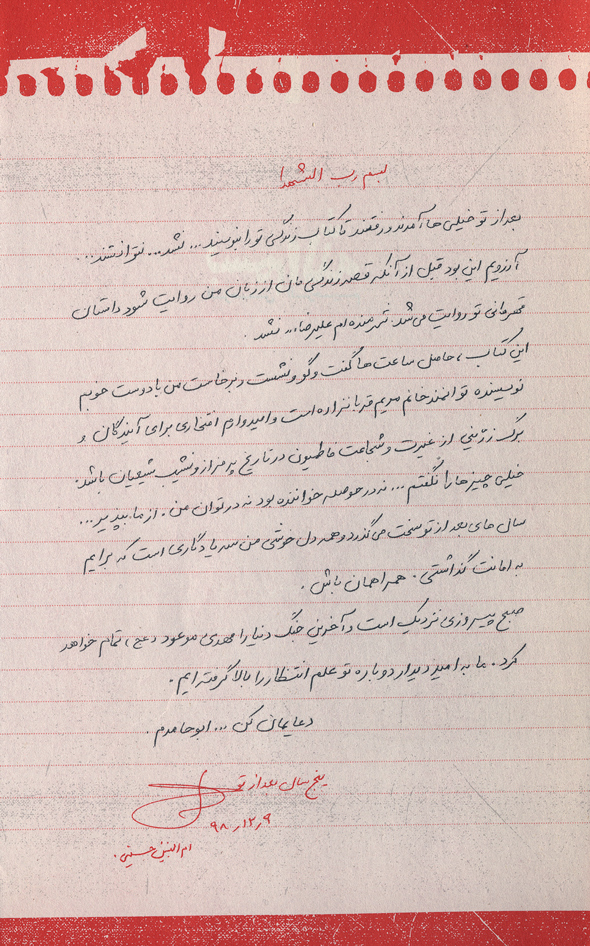 بسم رب الشهدا
بعد از تو خیلی ها آمدند و رفتند تا کتاب زندگی تو را بنویسند... نشد... نتوانستند...
آرزویم این بود قبل از آنکه قصه زندگی مان از زبان من روایت شود داستان
قهرمانی تو روایت می شد. شرمنده ام علیرضا،، نشد.
این کتاب، حاصل ساعت ها گفت و گو و نشست و برخاست من با دوست خوبم
نویسنده توانمند خانم مریم قربانزاده است و امیدوارم افتخاری برای آیندگان و
برگ زرینی از غیرت و شجاعت فاطمیون در تاریخ پر فراز و نشیب شیعیان باشد.
خیلی چیزها را نگفتم... نه در حوصله خواننده بود نه در توان من. از ما بپذیر...
سال های بعد از تو سخت می گذرد و همه دل خوشی من سه یادگاری است که برایم
به امانت گذاشتی. همراهمان باش.
صبح پیروزی نزدیک است و آخرین جنگ دنیا را مهدی موعود (عج) تمام خواهد
کرد. ما به امید دیدار دوباره تو علم انتظار را بالا گرفته ایم.
دعایمان کن... ابوحامدم.
پنج سال بعد از تو
۹۸،۱۲،۹
ام البنین حسینی.